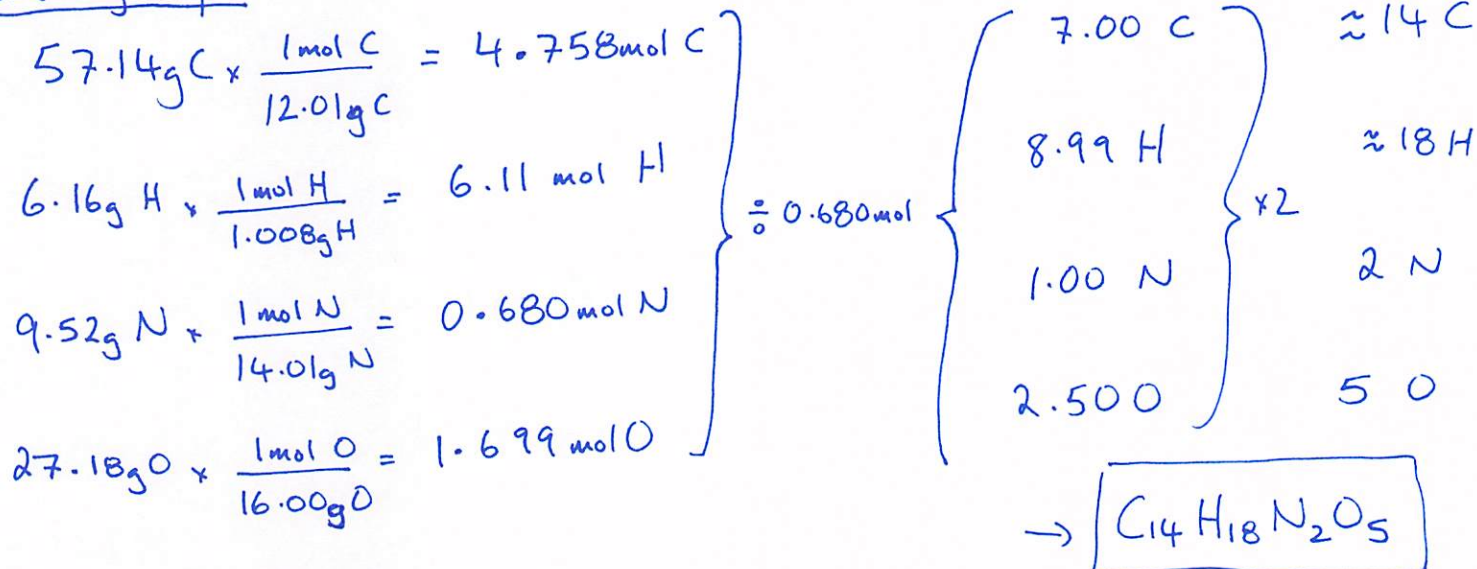 57.14g C × 1 mol C / 12.01g C = 4.758 mol C
6.16g H × 1 mol H / 1.008g H = 6.11 mol H
9.52g N × 1 mol N / 14.01g N = 0.680 mol N
27.18g O × 1 mol O / 16.00g O = 1.699 mol O
÷ 0.680 mol
7.00 C
8.99 H
1.00 N
2.50 O
×2
≈ 14 C
≈ 18 H
2 N
5 O
→ C14 H18 N2 O5